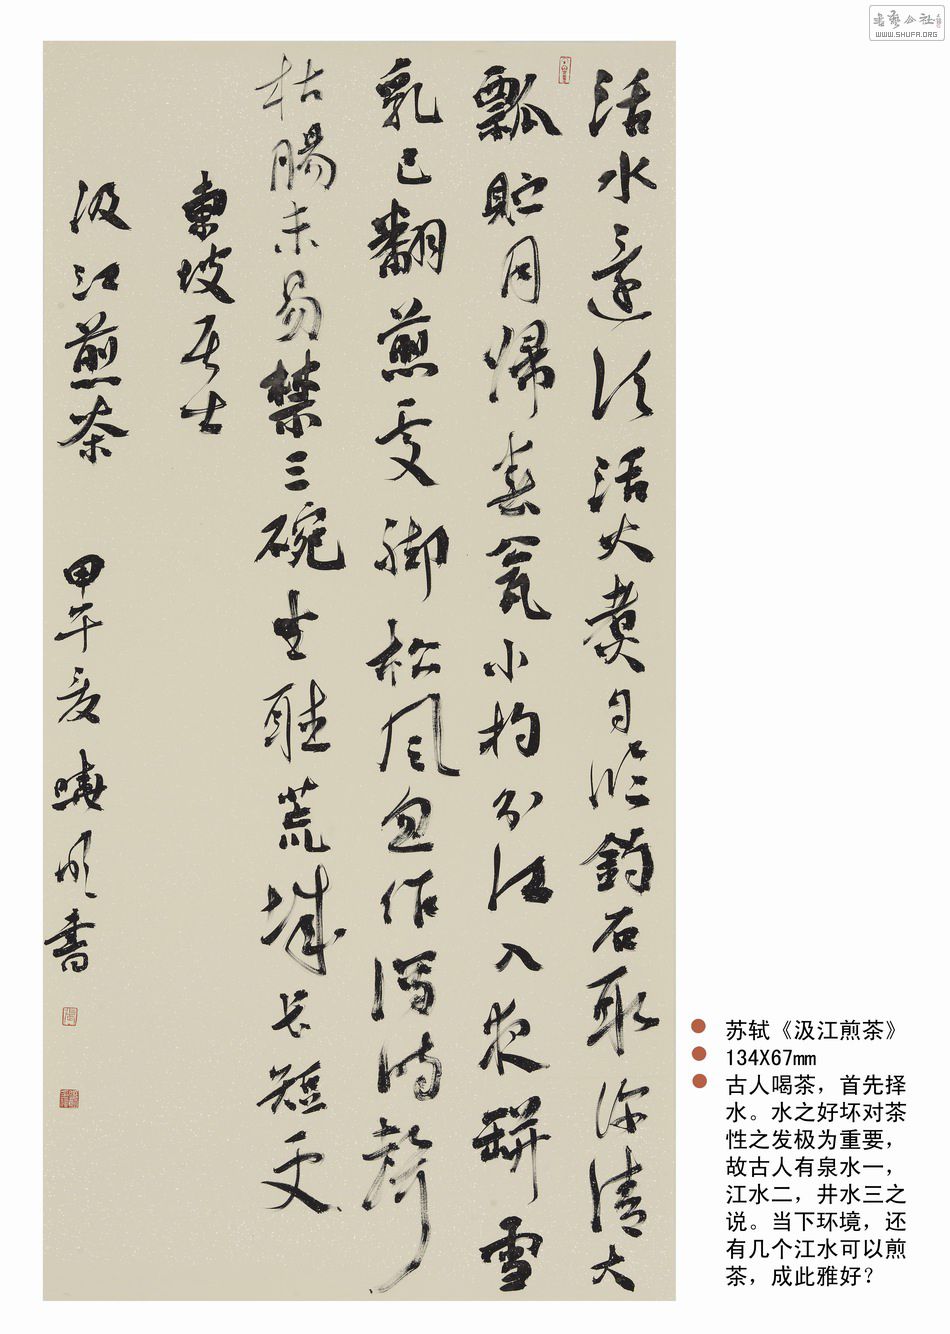 书艺公社
WWW.SHUFA.ORG
活水還須活火煮自臨釣石取深清大
瓢貯月歸春瓮小杓分江入夜缾雪
乳已翻煎處脚松風忽作瀉時聲
枯腸未易禁三碗坐聽荒城長短更
東坡居士
汲江煎茶 甲午夏 曉明書
苏轼《汲江煎茶》
134X67mm
古人喝茶，首先择
水。水之好坏对茶
性之发极为重要，
故古人有泉水一，
江水二，井水三之
说。当下环境，还
有几个江水可以煎
茶，成此雅好？